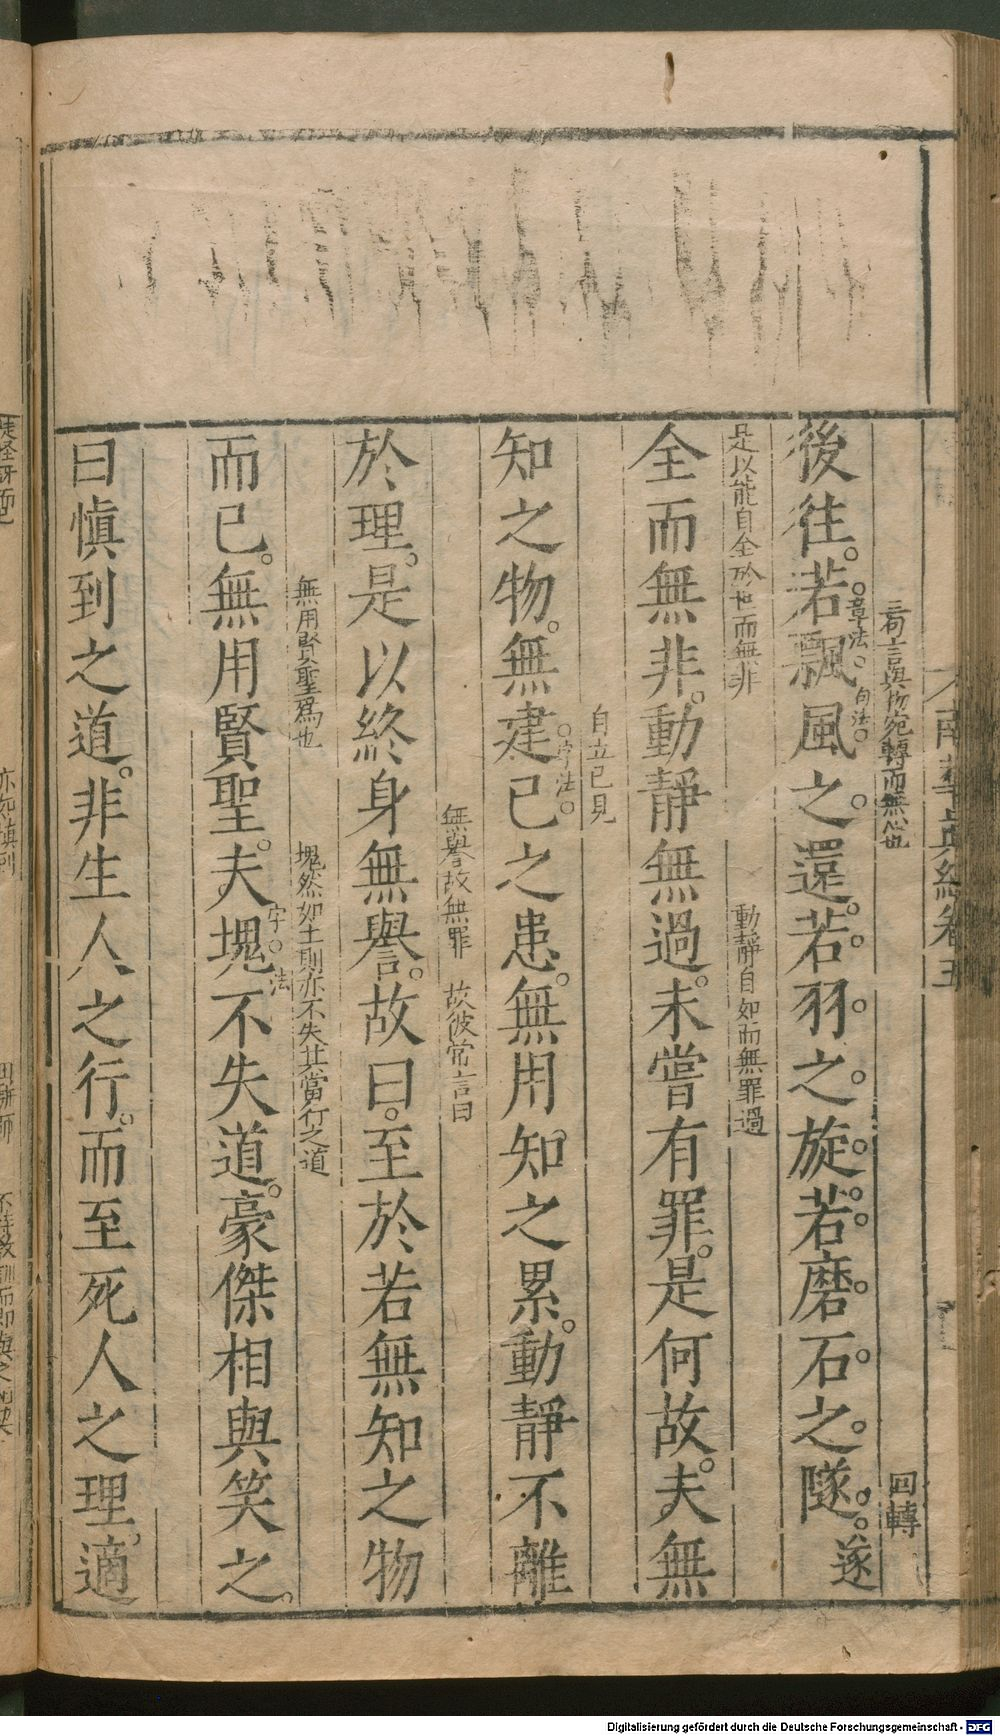 南華真經卷五
三句言與物宛轉而無心也
回轉
後往。若飄風之還。若羽之旋。若磨石之隧。
章法
句法
遂
是以能自全於世而無非
動靜自如而無罪過
全而無非。動靜無過。未嘗有罪。是何故。夫無
自立已見
知之物。無建己之患。無用知之累。動靜不離
字法
無譽故無罪
故彼常言曰
於理。是以終身無譽。故曰。至於若無知之物
無用賢聖爲也
塊然如土則亦不失其當行之道
而已。無用賢聖。夫塊不失道。豪傑相與笑之。
字法
曰慎到之道。非生人之行。而至死人之理。適
Digitalisierung gefördert durch die Deutsche Forschungsgemeinschaft - DFG